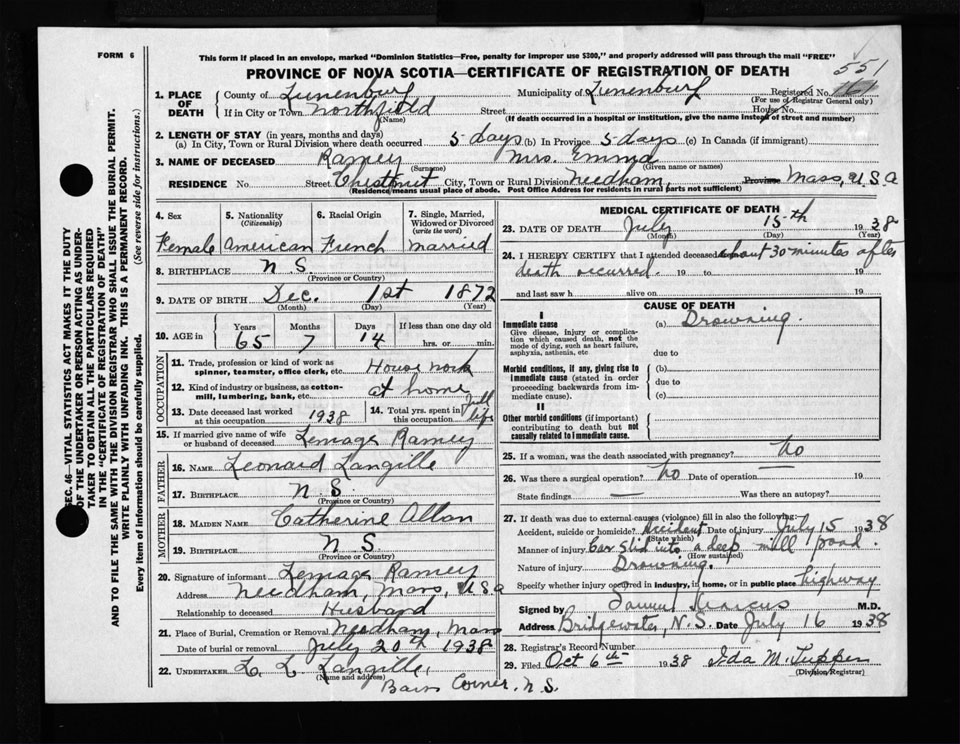 FORM 6
This form if placed in an envelope, marked "Dominion Statistics—Free, penalty for improper use $300," and properly addressed will pass through the mail "FREE"
551
PROVINCE OF NOVA SCOTIA—CERTIFICATE OF REGISTRATION OF DEATH
1. PLACE OF DEATH
County of Lunenburg Municipality of Lunenburg Registered No. 161
(For use of Registrar General only)
If in City or Town Northfield Street House No.
(Name) (If death occurred in a hospital or institution, give the name instead of street and number)
2. LENGTH OF STAY (in years, months and days)
(a) In City, Town or Rural Division where death occurred 5 days (b) In Province 5 days (c) In Canada (if immigrant)
3. NAME OF DECEASED Ramey Mrs. Emma
(Surname) (Given name or names)
RESIDENCE No Street Chestnut City, Town or Rural Division Needham, Province Mass, U.S.A
(Residence means usual place of abode. Post Office Address for residents in rural parts not sufficient)
4. Sex Female
5. Nationality (Citizenship) American
6. Racial Origin French
7. Single, Married, Widowed or Divorced (write the word) Married
8. BIRTHPLACE N.S.
(Province or Country)
9. DATE OF BIRTH Dec. 1st 1872
(Month) (Day) (Year)
10. AGE in Years 65 Months 7 Days 14 If less than one day old hrs. or min.
OCCUPATION
11. Trade, profession or kind of work as spinner, teamster, office clerk, etc. House work
12. Kind of industry or business, as cotton-mill, lumbering, bank, etc. at home
13. Date deceased last worked at this occupation 1938
14. Total yrs. spent in this occupation Full life
15. If married give name of wife or husband of deceased Lemage Ramey
FATHER
16. NAME Leonard Langille
17. BIRTHPLACE N S.
(Province or Country)
MOTHER
18. MAIDEN NAME Catherine
19. BIRTHPLACE N S.
(Province or Country)
20. Signature of informant Lemage Ramey
Address Needham, Mass, USA
Relationship to deceased Husband
21. Place of Burial, Cremation or Removal Needham, Mass
Date of burial or removal July 20th 1938
22. UNDERTAKER L. L. Langille,
Corner, N.S.
MEDICAL CERTIFICATE OF DEATH
23. DATE OF DEATH July 15th 1938
(Month) (Day) (Year)
24. I HEREBY CERTIFY that I attended deceased about 30 minutes after
death occurred. 19 to 19
and last saw h alive on 19
CAUSE OF DEATH
I
Immediate cause
Give disease, injury or complication which caused death, not the mode of dying, such as heart failure, asphyxia, asthenia, etc
(a) Drowning.
due to
Morbid conditions, if any, giving rise to immediate cause (stated in order proceeding backwards from immediate cause).
(b)
due to
(c)
II
Other morbid conditions (if important) contributing to death but not causally related to immediate cause.
25. If a woman, was the death associated with pregnancy? No
26. Was there a surgical operation? No Date of operation 19
State findings — Was there an autopsy? —
27. If death was due to external causes (violence) fill in also the following:
Accident, suicide or homicide? Accident Date of injury July 15 1938
(State which)
Manner of injury Car slid into a deep mill pond.
(How sustained)
Nature of injury Drowning.
Specify whether injury occurred in industry, in home, or in public place highway
Signed by Samuel Marcus M.D.
Address Bridgewater, N.S. Date July 16 1938
28. Registrar's Record Number
29. Filed Oct 6th 1938 Ida M. Tupper
(Division Registrar)
SEC. 46—VITAL STATISTICS ACT MAKES IT THE DUTY
OF THE UNDERTAKER OR PERSON ACTING AS UNDER-
TAKER TO OBTAIN ALL THE PARTICULARS REQUIRED
IN THE "CERTIFICATE OF REGISTRATION OF DEATH"
AND TO FILE THE SAME WITH THE DIVISION REGISTRAR WHO SHALL ISSUE THE BURIAL PERMIT.
WRITE PLAINLY WITH UNFADING INK. THIS IS A PERMANENT RECORD.
Every item of information should be carefully supplied. (See reverse side for instructions.)